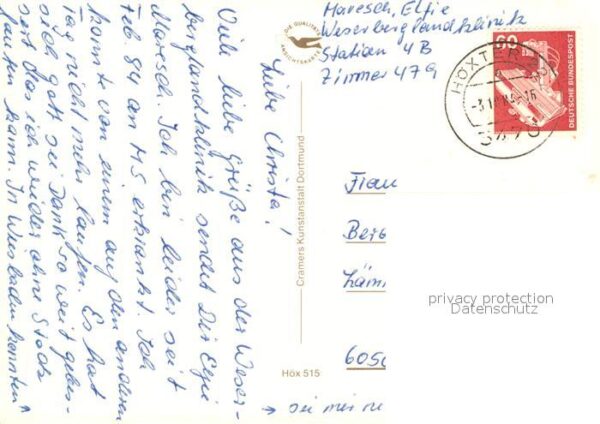 Maresch, Elfie
Weserberglandklinik
Station 4B
Zimmer 479
60
DEUTSCHE BUNDESPOST
HÖXTER
3470
DIE QUALITÄTS
ANSICHTSKARTE
Liebe Christa!
Viele liebe Grüße aus der Weser-
berglandklinik sendet Dir Elfie
Maresch. Ich bin leider seit
Feb 84 an M.S. erkrankt. Ich
konnte von einem auf den anderen
Tag nicht mehr laufen. Es hat
sich Gott sei Dank so weit gebes-
sert das ich wieder ohne Stock
laufen kann. In Wiesbaden konnten
sie mir
Cramers Kunstanstalt Dortmund
Höx 515
Frau
Berg
Lämm
6050
privacy protection
Datenschutz